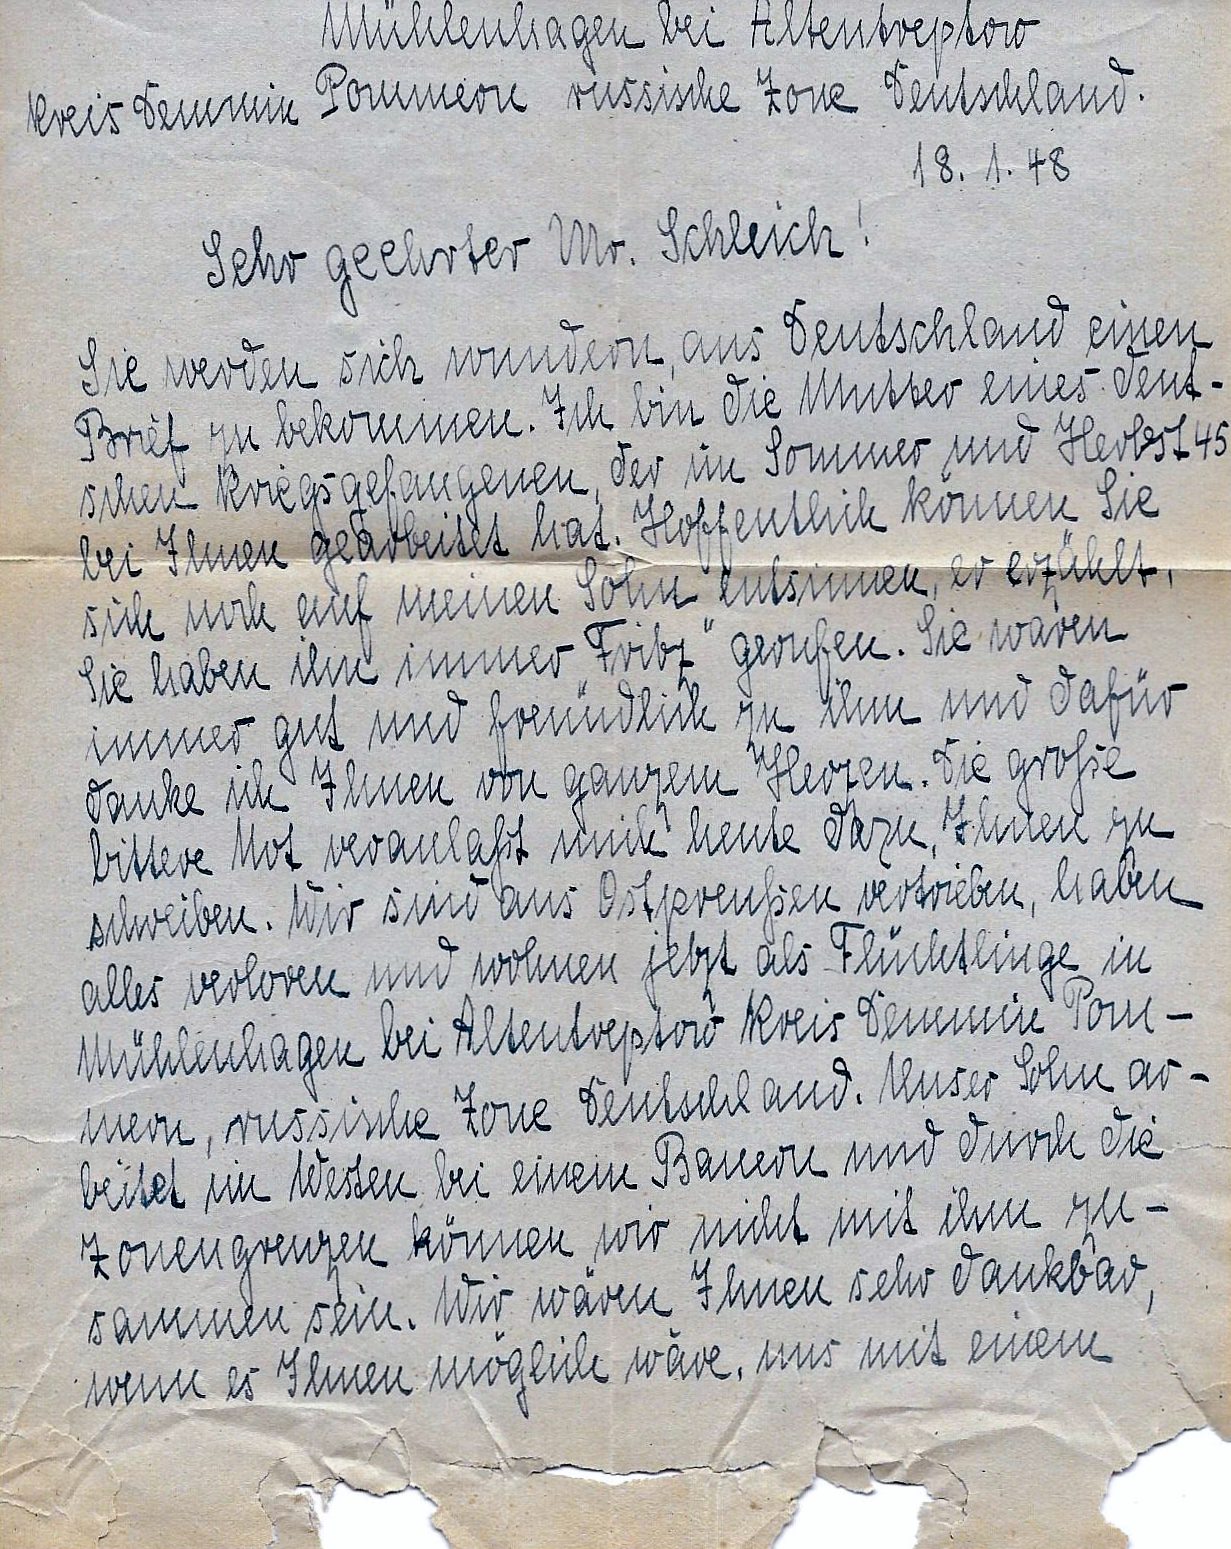 Mühlenhagen bei Altentreptow
Kreis Demmin Pommern russische Zone Deutschland.
18. 1. 48
Sehr geehrter Mr. Schleich!
Sie werden sich wundern, aus Deutschland einen
Brief zu bekommen. Ich bin die Mutter eines deut-
schen Kriegsgefangenen, der im Sommer und Herbst 45
bei Ihnen gearbeitet hat. Hoffentlich können Sie
sich noch auf meinen Sohn entsinnen, er erzählt,
Sie haben ihn immer "Fritz" gerufen. Sie waren
immer gut und freundlich zu ihm und dafür
danke ich Ihnen von ganzem Herzen. Die große
bittere Not veranlaßt mich heute dazu, Ihnen zu
schreiben. Wir sind aus Ostpreußen vertrieben, haben
alles verloren und wohnen jetzt als Flüchtlinge in
Mühlenhagen bei Altentreptow Kreis Demmin Pom-
mern, russische Zone Deutschland. Unser Sohn ar-
beitet im Westen bei einem Bauern und durch die
Zonengrenzen können wir nicht mit ihm zu-
sammen sein. Wir wären Ihnen sehr dankbar,
wenn es Ihnen möglich wäre, uns mit einem